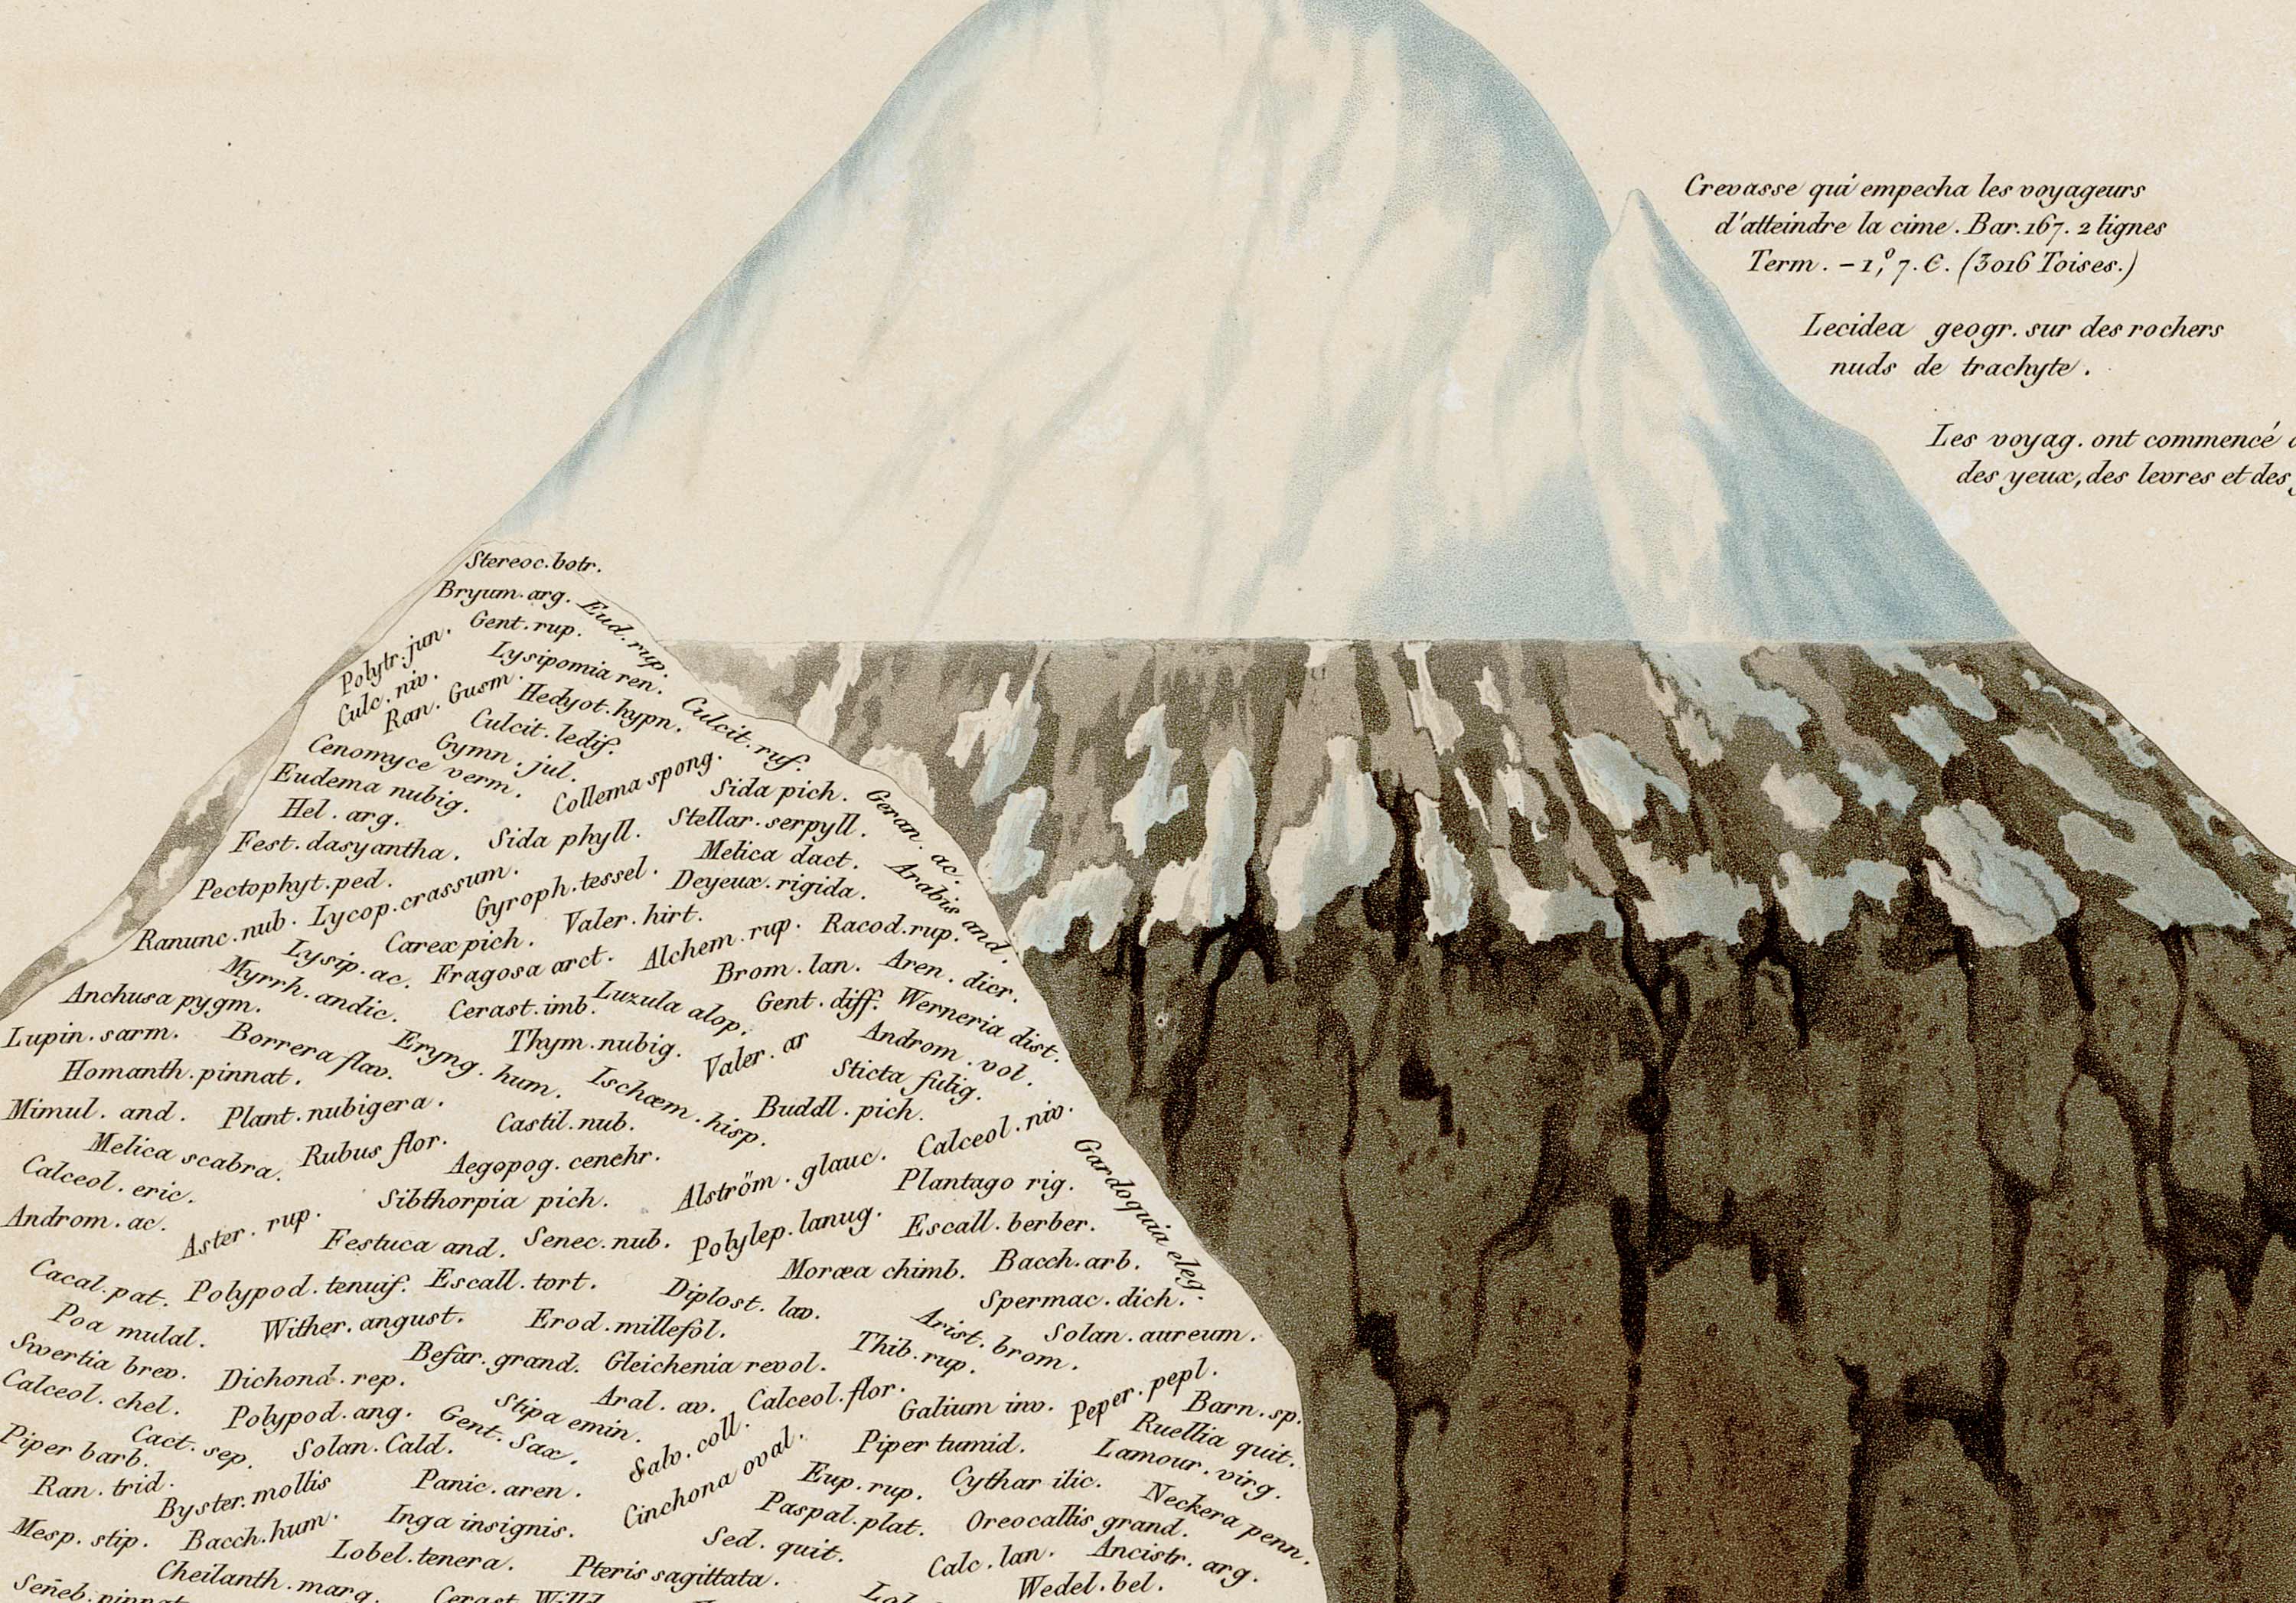 Crevasse qui empecha les voyageurs
d'atteindre la cime. Bar. 167. 2 lignes
Term. – 1,°7. C. (3016 Toises.)
Lecidea geogr. sur des rochers
nuds de trachyte.
Les voyag. ont commencé
des yeux, des levres et des
Stereoc. botr.
Bryum. arg.
Eud. rup.
Gent. rup.
Polytr. jun.
Lysipomia ren.
Culc. niv.
Ran. Gusm.
Hedyot. hypn.
Culcit. ruf.
Culcit. ledif.
Gymn. jul.
Cenomyce verm.
Collema spong.
Eudema nubig.
Sida pich.
Geran. ac.
Hel. arg.
Stellar. serpyll.
Fest. dasyantha.
Sida phyll.
Melica dact.
Arabis and.
Pectophyt. ped.
Deyeux. rigida.
Lycop. crassum.
Gyroph. tessel.
Ranunc. nub.
Valer. hirt.
Racod. rup.
Carex pich.
Alchem. rup.
Lysip. ac.
Fragosa arct.
Brom. lan.
Aren. dicr.
Myrrh. andic.
Anchusa pygm.
Cerast. imb.
Luzula alop.
Gent. diff.
Werneria dist.
Lupin. sarm.
Borrera flav.
Eryng. hum.
Thym. nubig.
Valer. ar
Androm. vol.
Homanth. pinnat.
Ischæm. hisp.
Sticta fulig.
Mimul. and.
Plant. nubigera.
Castil. nub.
Buddl. pich.
Calceol. niv.
Melica scabra.
Rubus flor.
Aegopog. cenchr.
Gardoquia eleg.
Calceol. eric.
Sibthorpia pich.
Alström. glauc.
Plantago rig.
Androm. ac.
Aster. rup.
Festuca and.
Senec. nub.
Polylep. lanug.
Escall. berber.
Cacal. pat.
Polypod. tenuif.
Escall. tort.
Moræa chimb.
Bacch. arb.
Diplost. lav.
Spermac. dich.
Poa mulal.
Wither. angust.
Erod. millefol.
Arist. brom.
Solan. aureum.
Swertia brev.
Dichond. rep.
Befar. grand.
Gleichenia revol.
Thib. rup.
Calceol. chel.
Polypod. ang.
Stipa emin.
Aral. av.
Calceol. flor.
Galium inv.
Peper. pepl.
Barn. sp.
Cact. sep.
Solan. Cald.
Gent. Sax.
Salv. coll.
Ruellia quit.
Piper barb.
Piper tumid.
Lamour. virg.
Ran. trid.
Byster. mollis
Panic. aren.
Cinchona oval.
Eup. rup.
Cythar ilic.
Neckera penn.
Mesp. stip.
Bacch. hum.
Inga insignis.
Paspal. plat.
Oreocallis grand.
Lobel. tenera.
Sed. quit.
Ancistr. arg.
Cheilanth. marg.
Pteris sagittata.
Calc. lan.
Wedel. bel.